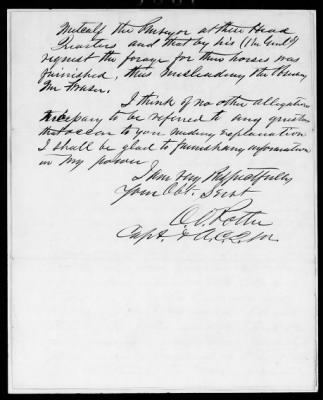 Metcalf the Surveyor at their Head
Quarters and that by his (the Genl's)
request the forage for these horses was
furnished, thus misleading the
Mr Fraser.
I think of no other allegation
necessary to be referred to any question
that occur to you needing explanation
I shall be glad to furnish any information
in my power
I am Very Respectfully
Your Obt. Servt
Capt. & A.C.S.